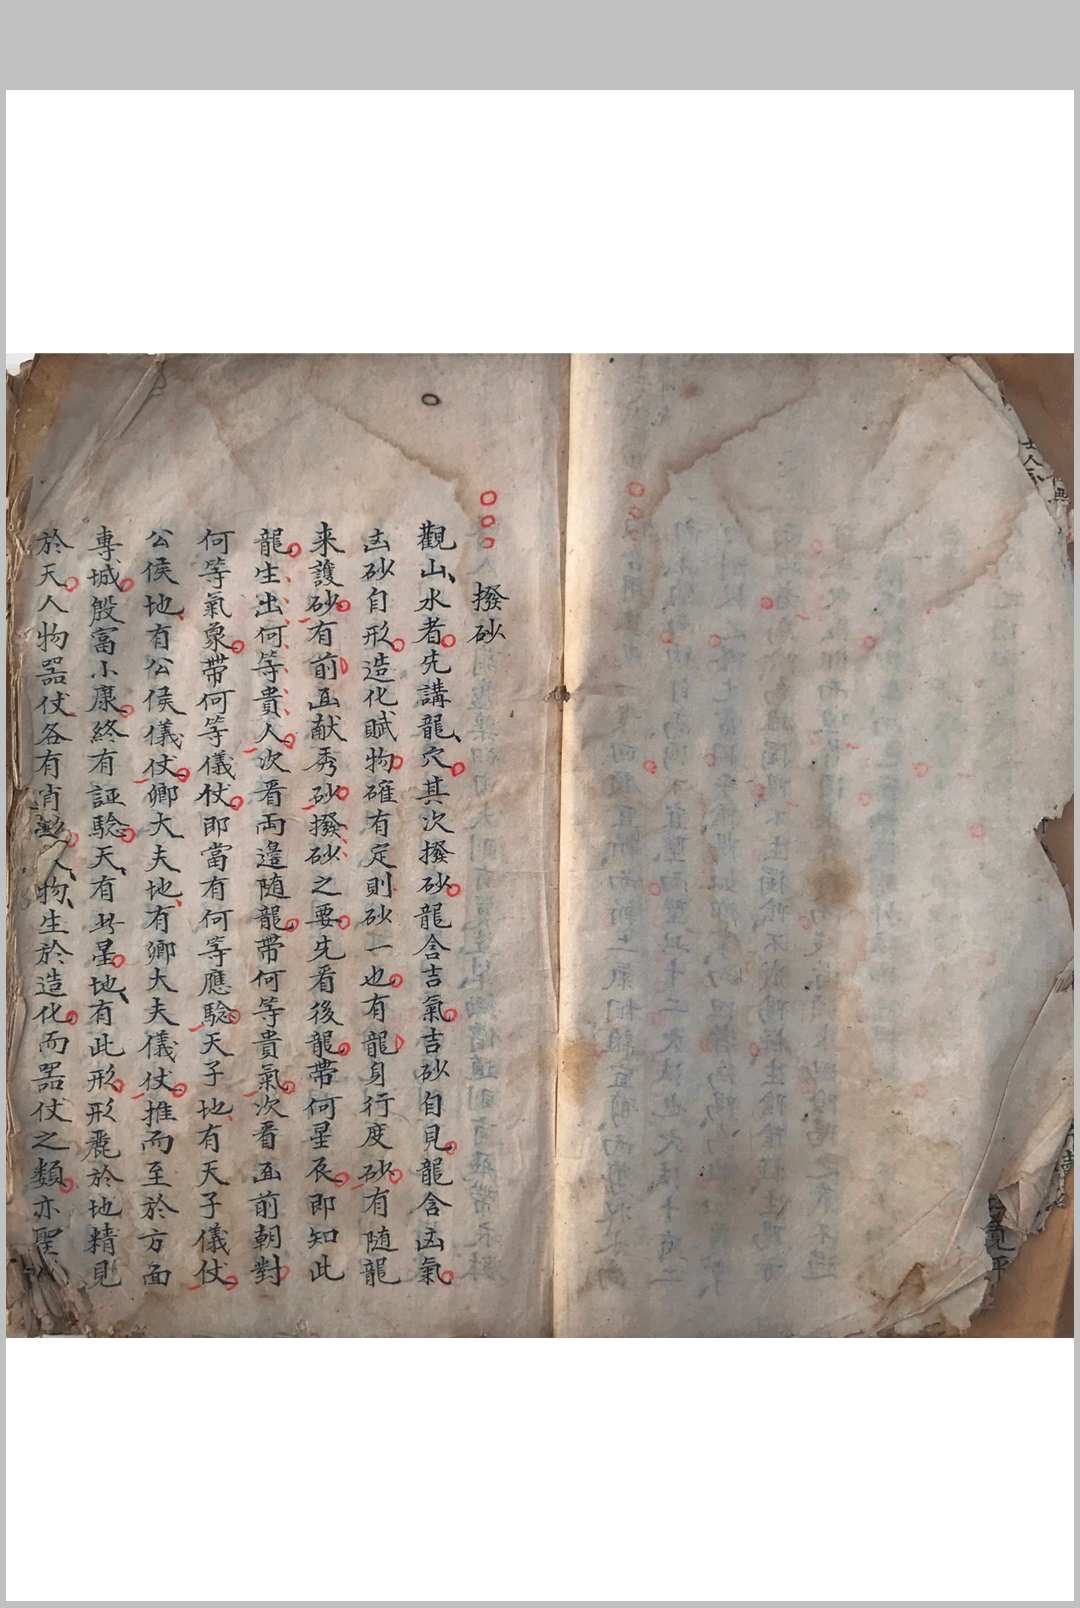 撥砂
觀山水者先講龍穴其次撥砂龍含吉氣吉砂自見龍含凶氣
凶砂自形造化賦物確有定則砂一也有龍身行度砂有隨龍
来護砂有前面献秀砂撥砂之要先看後龍帶何星辰即知此
龍生出何等貴人次看両邉随龍帶何等貴氣次看面前朝對
何等氣象帶何等儀仗即當有何等應騐天子地有天子儀仗
公侯地有公侯儀仗卿大夫地有卿大夫儀仗推而至於方面
專城殷富小康終有証騐天有此星地有此形形麗於地精見
於天人物器仗各有肖人物生於造化而器仗之類亦聖